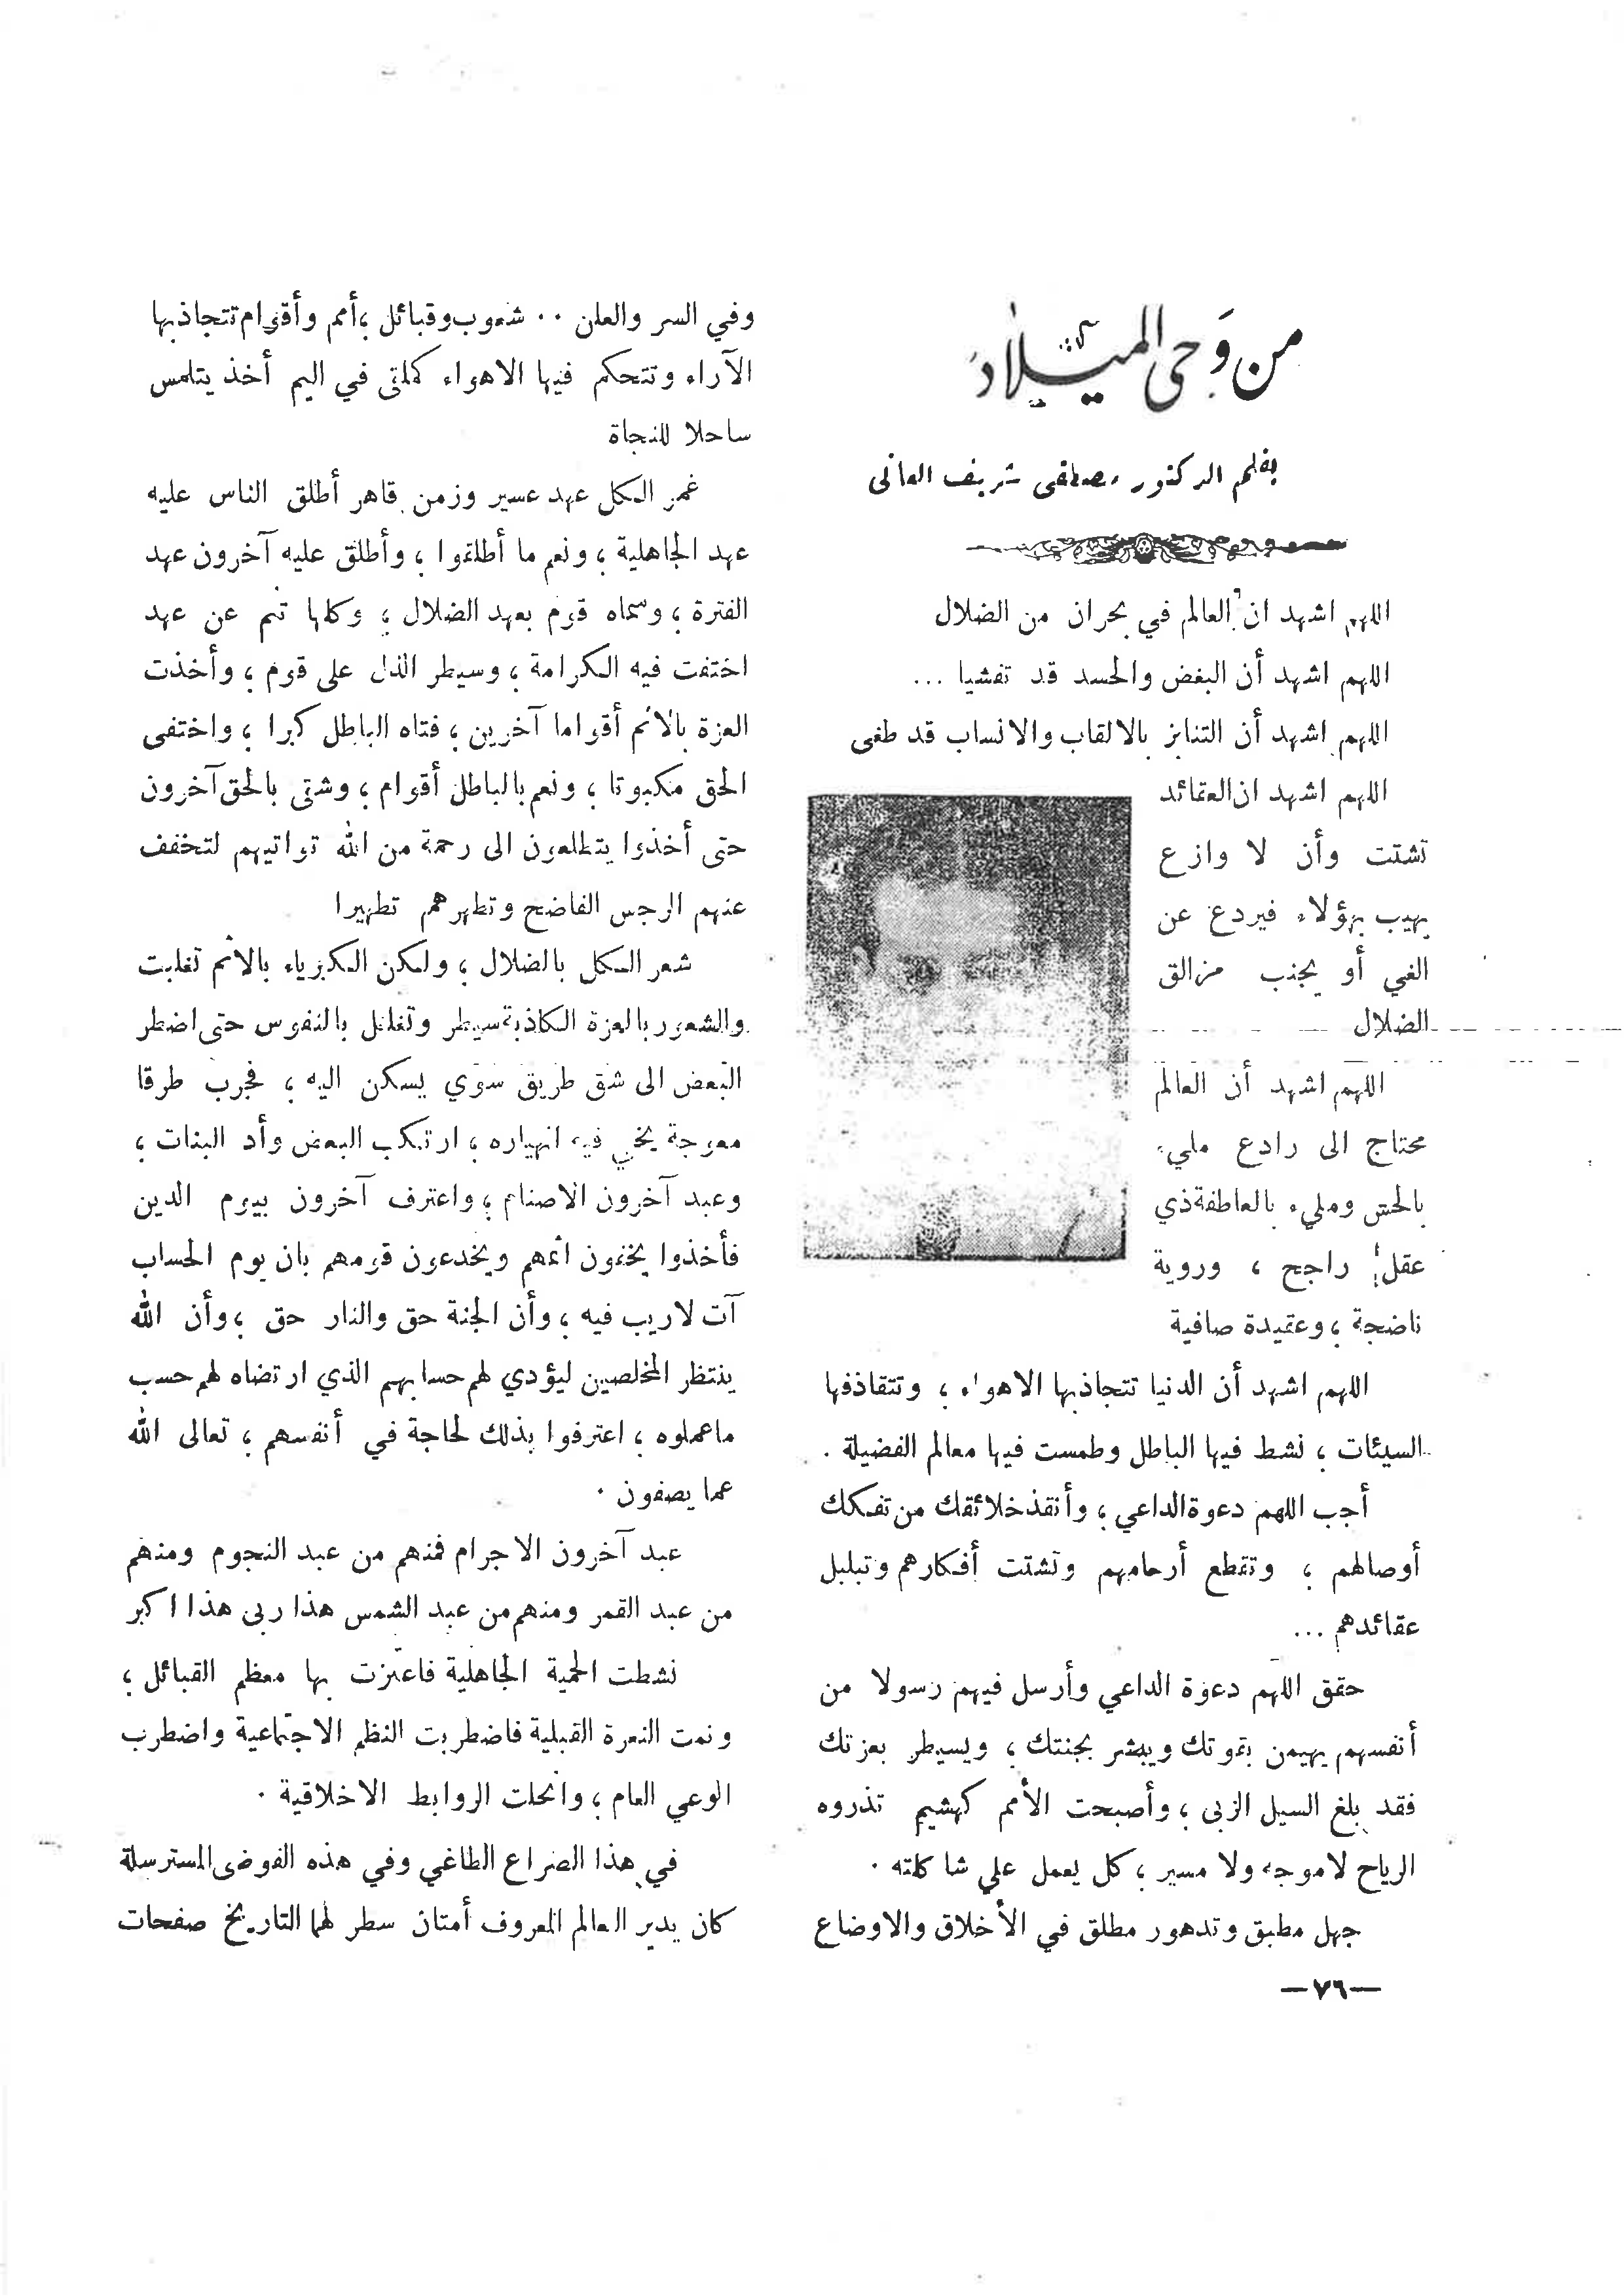 من وحي الميلاد
بقلم الدكتور مصطفى شريف العاني
اللهم اشهد ان العالم في بحران من الضلال
اللهم اشهد أن البغض والحسد قد تفشيا ...
اللهم اشهد أن التنابز بالالقاب والانساب قد طغى
اللهم اشهد ان العقائد
تشتت وأن لا وازع
يهيب بهؤلاء فيردع عن
الغي أو يجنب مزالق
الضلال
اللهم اشهد أن العالم
محتاج الى رادع مليء
بالحس ومليء بالعاطفة ذي
عقل راجح ، وروية
ناضجة ، وعقيدة صافية
اللهم اشهد أن الدنيا تتجاذبها الاهواء ، وتتقاذفها
السيئات ، نشط فيها الباطل وطمست فيها معالم الفضيلة .
أجب اللهم دعوة الداعي ، وأنقذ خلائقك من تفكك
أوصالهم ، وتقطع أرحامهم وتشتت أفكارهم وتبلبل
عقائدهم ...
حقق اللهم دعوة الداعي وأرسل فيهم رسولا من
أنفسهم يهيمن بقوتك ويبشر بجنتك ، ويسيطر بعزتك
فقد بلغ السيل الزبى ، وأصبحت الأمم كهشيم تذروه
الرياح لا موجه ولا مسير ، كل يعمل على شاكلته .
جهل مطبق وتدهور مطلق في الأخلاق والاوضاع
وفي السر والعلن .. شعوب وقبائل ، أمم وأقوام تتجاذبها
الآراء وتتحكم فيها الاهواء كملقى في اليم أخذ يتلمس
ساحلا للنجاة
غمر الكل عهد عسير وزمن قاهر أطلق الناس عليه
عهد الجاهلية ، ونعم ما أطلقوا ، وأطلق عليه آخرون عهد
الفترة ، وسماه قوم بعهد الضلال ، وكلها تنم عن عهد
اختفت فيه الكرامة ، وسيطر الذل على قوم ، وأخذت
العزة بالاثم أقواما آخرين ، فتاه الباطل كبرا ، واختفى
الحق مكبوتا ، ونعم بالباطل أقوام ، وشقى بالحق آخرون
حتى أخذوا يتطلعون الى رحمة من الله تواتيهم لتخفف
عنهم الرجس الفاضح وتطهرهم تطهيرا
شعر الكل بالضلال ، ولكن الكبرياء بالاثم تغلبت
والشعور بالعزة الكاذبة سيطر وتغلغل بالنفوس حتى اضطر
البعض الى شق طريق سوي يسكن اليه ، فجرب طرقا
معوجة يخفي فيه انهياره ، ارتكب البعض وأد البنات ،
وعبد آخرون الاصنام ، واعترف آخرون بيوم الدين
فأخذوا يخفون اثمهم ويخدعون قومهم بان يوم الحساب
آت لاريب فيه ، وأن الجنة حق والنار حق ، وأن الله
ينتظر المخلصين ليؤدي لهم حسابهم الذي ارتضاه لهم حسب
ماعملوه ، اعترفوا بذلك لحاجة في أنفسهم ، تعالى الله
عما يصفون .
عبد آخرون الاجرام فمنهم من عبد النجوم ومنهم
من عبد القمر ومنهم من عبد الشمس هذا ربى هذا اكبر
نشطت الحمية الجاهلية فاعتزت بها معظم القبائل ،
ونمت النعرة القبلية فاضطربت النظم الاجتماعية واضطرب
الوعي العام ، وانحلت الروابط الاخلاقية .
في هذا الصراع الطاغي وفي هذه الفوضى المسترسلة
كان يدير العالم المعروف أمتان سطر لهما التاريخ صفحات
—٧٦—